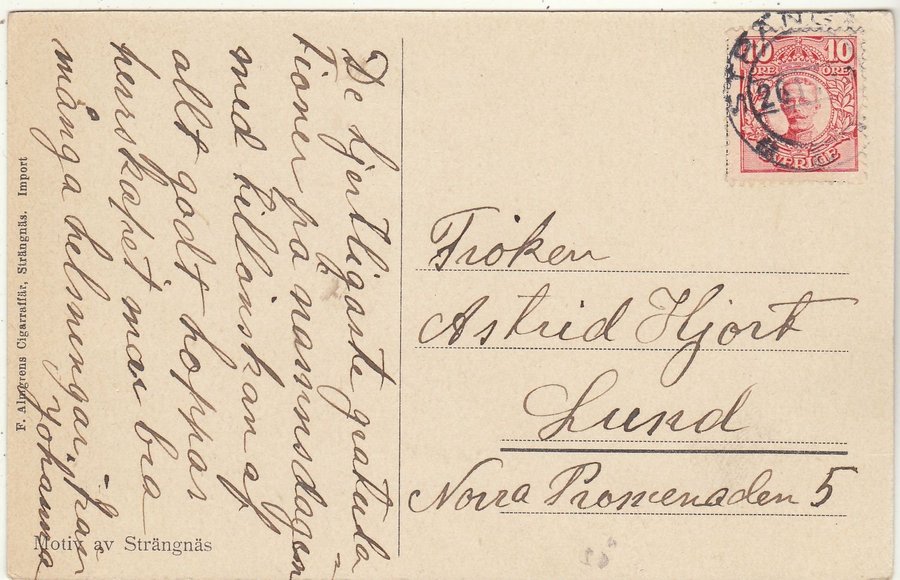 De hjertligaste gratula
tioner på namnsdagen
med tillönskan af
allt godt hoppas
herrskapet mår bra
många helsningar från
Johanna
F. Almgrens Cigarraffär, Strängnäs. Import
Motiv av Strängnäs
10 10
ÖRE ÖRE
SVERIGE
Fröken
Astrid Hjort
Lund
Norra Promenaden 5